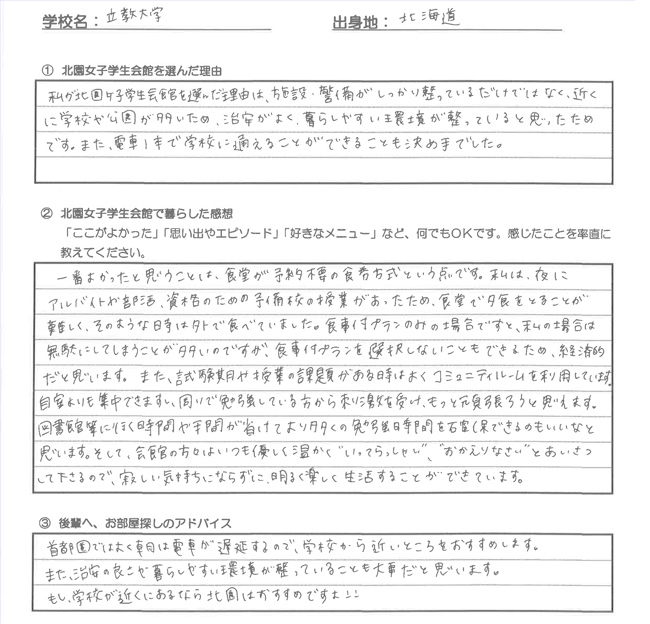 学校名: 立教大学 出身地: 北海道
① 北園女子学生会館を選んだ理由
私が北園女子学生会館を選んだ理由は、施設・警備がしっかり整っているだけではなく、近く
に学校や公園が多いため、治安がよく、暮らしやすい環境が整っていると思ったため
です。また、電車1本で学校に通えることができることも決め手でした。
② 北園女子学生会館で暮らした感想
「ここがよかった」「思い出やエピソード」「好きなメニュー」など、何でもOKです。感じたことを率直に
教えてください。
一番よかったと思うことは、食堂が予約不要の食券方式という点です。私は、夜に
アルバイトや部活、資格のための予備校の授業があったため、食堂で夕食をとることが
難しく、そのような日時は外で食べていました。食事付プランのみの場合ですと、私の場合は
無駄にしてしまうことが多いのですが、食事付プランを選択しないこともできるため、経済的
だと思います。また、試験期間や授業の課題がある時はよくコミュニティルームを利用しています。
自室よりも集中できますし、周りで勉強している方から刺激を受け、もっと頑張ろうと思えます。
図書館等に行く時間や手間が省けてより多くの勉強時間を確保できるのもいいなと
思います。そして、会館の方々はいつも優しく温かく"いってらっしゃい"、"おかえりなさい"とあいさつ
して下さるので、寂しい気持ちにならずに、明るく楽しく生活することができています。
③ 後輩へ、お部屋探しのアドバイス
首都圏ではよく朝は電車が遅延するので、学校から近いところをおすすめします。
また、治安の良さや暮らしやすい環境が整っていることも大事だと思います。
もし、学校が近くにあるなら北園はおすすめですよ!!